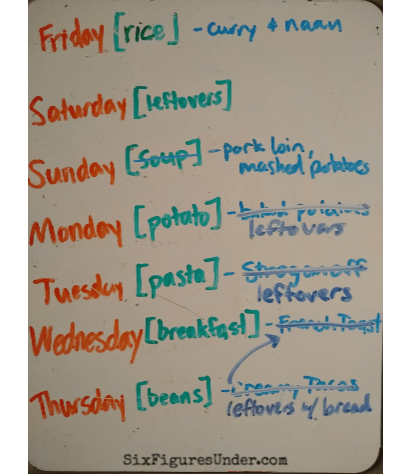 Friday [rice] - curry + naan
Saturday [leftovers]
Sunday [soup] - pork loin,
mashed potatoes
Monday [potato] - baked potatoes
leftovers
Tuesday [pasta] - Stroganoff
leftovers
Wednesday [breakfast] - French Toast
Thursday [beans] - Creamy Tacos
leftovers w/ bread
SixFiguresUnder.com